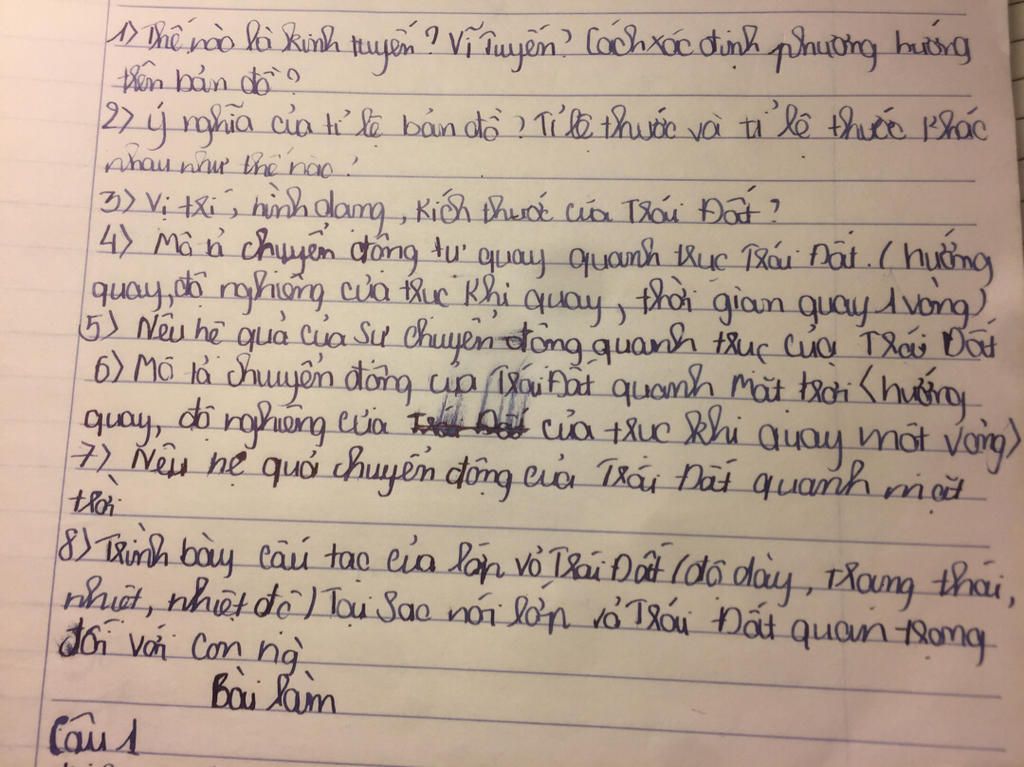 1) Thế nào là kinh tuyến? Vĩ Tuyến? Cách xác định phương hướng
trên bản đồ?
2) ý nghĩa của tỉ lệ bản đồ? Tỉ lệ thước và tỉ lệ thước khác
nhau như thế nào?
3) Vị trí, hình dạng, kích thước của Trái Đất?
4) Mô tả chuyển động tự quay quanh trục Trái Đất. (hướng
quay, độ nghiêng của trục khi quay, thời gian quay 1 vòng)
5) Nêu hệ quả của sự chuyển động quanh trục của Trái Đất
6) Mô tả chuyển động của Trái Đất quanh Mặt trời (hướng
quay, độ nghiêng của Trái Đất của trục khi quay một vòng)
7) Nêu hệ quả chuyển động của Trái Đất quanh mặt
trời
8) Trình bày cấu tạo của lớp vỏ Trái Đất (độ dày, trạng thái,
nhiệt, nhiệt độ) Tại sao nói lớp vỏ Trái Đất quan trọng
đối với con ng
Bài làm
Câu 1